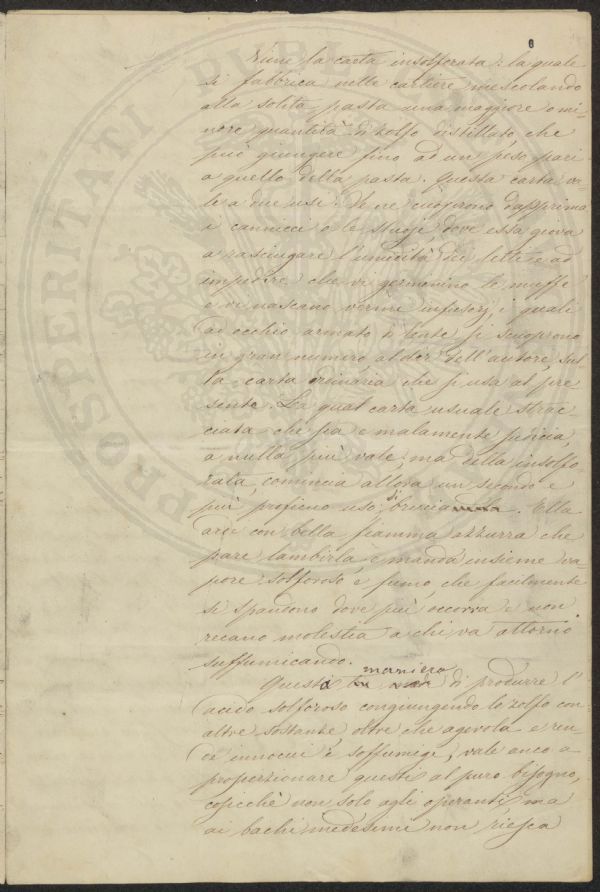 8
Viene la carta insolforata: la quale
si fabbrica nelle cartiere mescolando
alla solita pasta una maggiore o mi-
nore quantità di zolfo distillato, che
può giungere fino ad un peso pari
a quello della pasta. Questa carta va-
le a due usi. Se ne cuoprono dapprima
i cannicci o le stuoje dove essa giova
a rasciugare l'umidità dei lettiere ad
impedire che vi germinino le muffe
e vi nascano vermi infusorj, i quali
ad occhio armato di lente si scuoprono
in gran numero al dir dell'autore, sul-
la carta ordinaria che si usa al pre
sente. La qual carta usuale strac
ciata che sia e malamente sudicia,
a nulla più vale: ma della insolfo
rata, comincia allora un secondo e
più proficuo uso di bruciarla. Ella
arde con bella fiamma azzurra che
pare lambirla e manda insieme va-
pore solforoso e fumo che facilmente
si spandono dove più occorra e non
recano molestia a chi va attorno
suffumicando.
maniera
Questa di produrre l'
acido solforoso congiungendo lo zolfo con
altre sostanze, oltre che agevola e ren-
de innocui i soffumigi, vale anco a
proporzionare questi al puro bisogno,
cosicchè non solo agli operanti, ma
ai bachi medesimi non riesca
PROSPERITATI PUBL